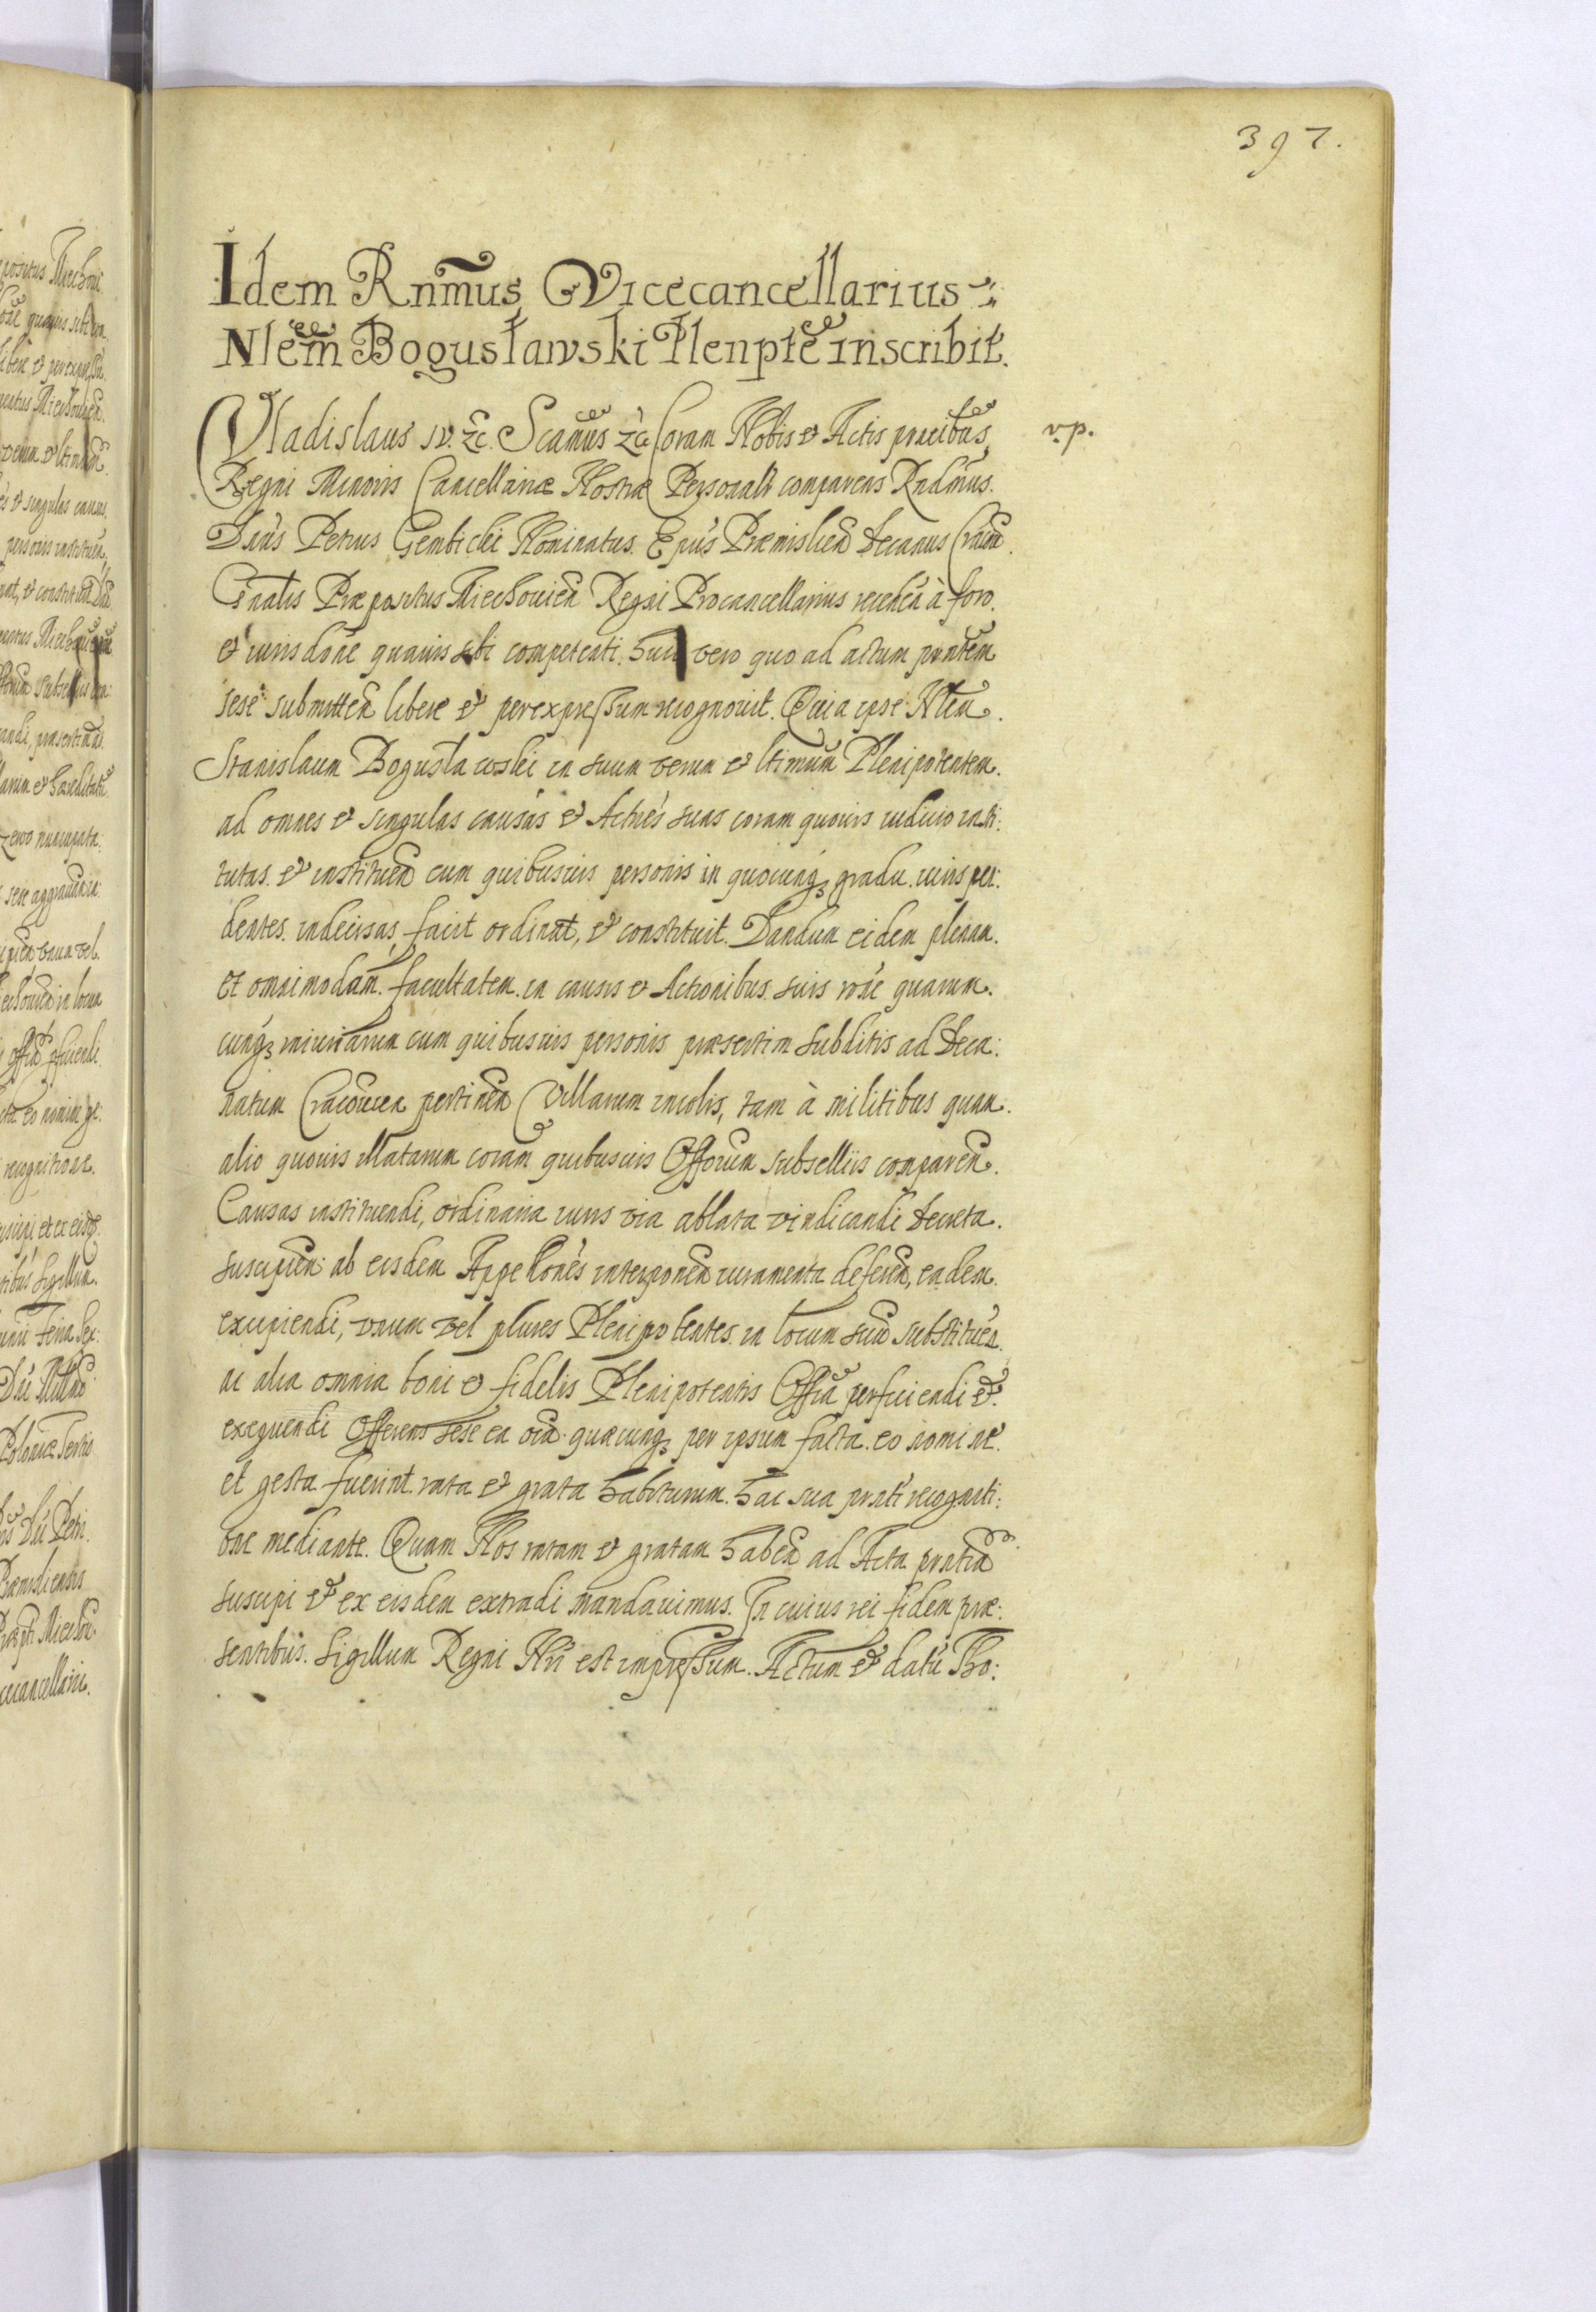 397.
Idem Rnmus Vicecancellarius
Nlem Bogusławski Plenpte inscribit.
Vladislaus IV. zc. Scamus zc Coram Nobis et Actis praetibus v.p.
Regni Minoris Cancellariæ Nostræ Personalr comparens Rndmus.
Dnus Petrus Gembicki Nominatus. Epus Præmislien Decanus Craun
Gnalis Præpositus Miechouien Regni Procancellarius receden à foro.
et iurisdone quauis sibi competenti. huic vero quo ad actum pntem
sese submitten libere et perexpressum recognouit. Quia ipse Nlem.
Stanislaum Bogusławski in suum verum et ltimum Plenipotentem.
ad omnes et singulas causas et Actnes suas coram quouis iudicio insti:
tutas. et instituen cum quibusuis personis in quocunq gradu iuris pen:
dentes. indecisas, facit ordinat, et constituit. Dandum eidem plenam.
et omnimodam. facultatem. in causis et Actionibus. suis rone quarum.
cunq iniuriarum cum quibusuis personis præsertim subditis ad Deca:
natum Cracouien pertinen Villarum incolis, tam à militibus quam.
alio quouis illatarum coram quibusuis Offorum subselliis comparen.
Causas instituendi, ordinaria iuris via ablata vindicandi Decreta.
suscipien: ab eisdem Appellones interponen iuramenta deferen, eadem.
excipiendi, vnum vel plures Plenipotentes. in locum suu substituen.
ac alia omnia boni et fidelis Plenipotentis Offia perficiendi et.
exequendi Offerens sese ea oia quæcunq per ipsum facta. eo nomine.
et gesta fuerint rata et grata habiturum. hac sua pnti recogniti:
one mediante. Quam Nos ratam et gratam haben ad Acta pntia
suscipi et ex eisdem extradi mandauimus. In cuius rei fidem præ:
sentibus. Sigillum Regni Nri est impressum. Actum et datu Tho: